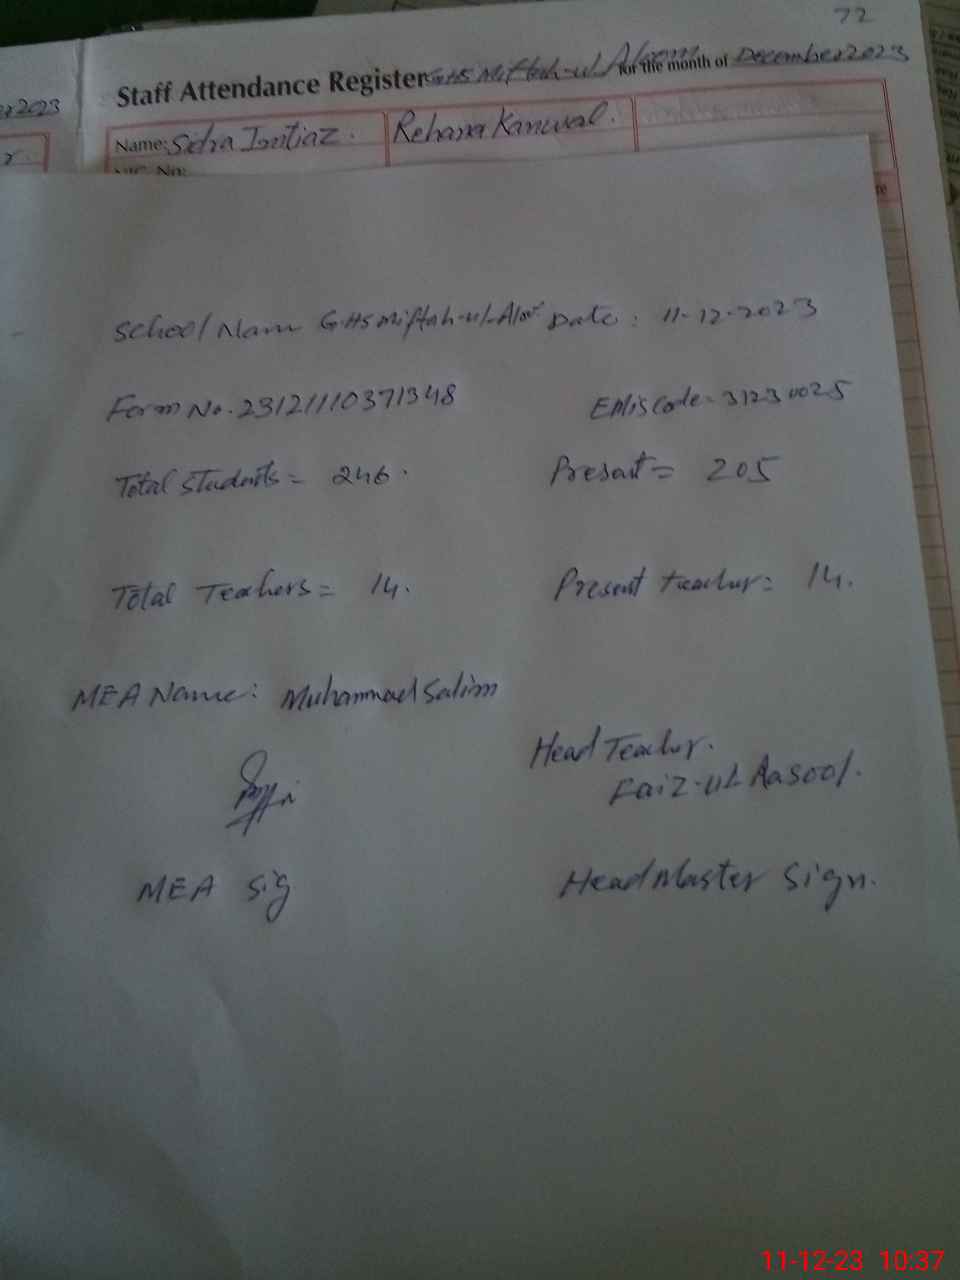 72
Staff Attendance Register GHS Miftah-ul-Aloom for the month of December 2023
r 2023
Name: Sidra Imtiaz. Rehana Kanwal.
r.
NIC No:
School Nam GHS Miftah-ul-Aloo Date: 11-12-2023
Form No. 23121110371348 EmisCode- 31230025
Total Students = 246. Present = 205
Total Teachers = 14. Present teacher = 14.
MEA Name: Muhammad Salim
Head Teacher.
Faiz-ul Rasool.
MEA Sig HeadMaster Sign.
11-12-23 10:37